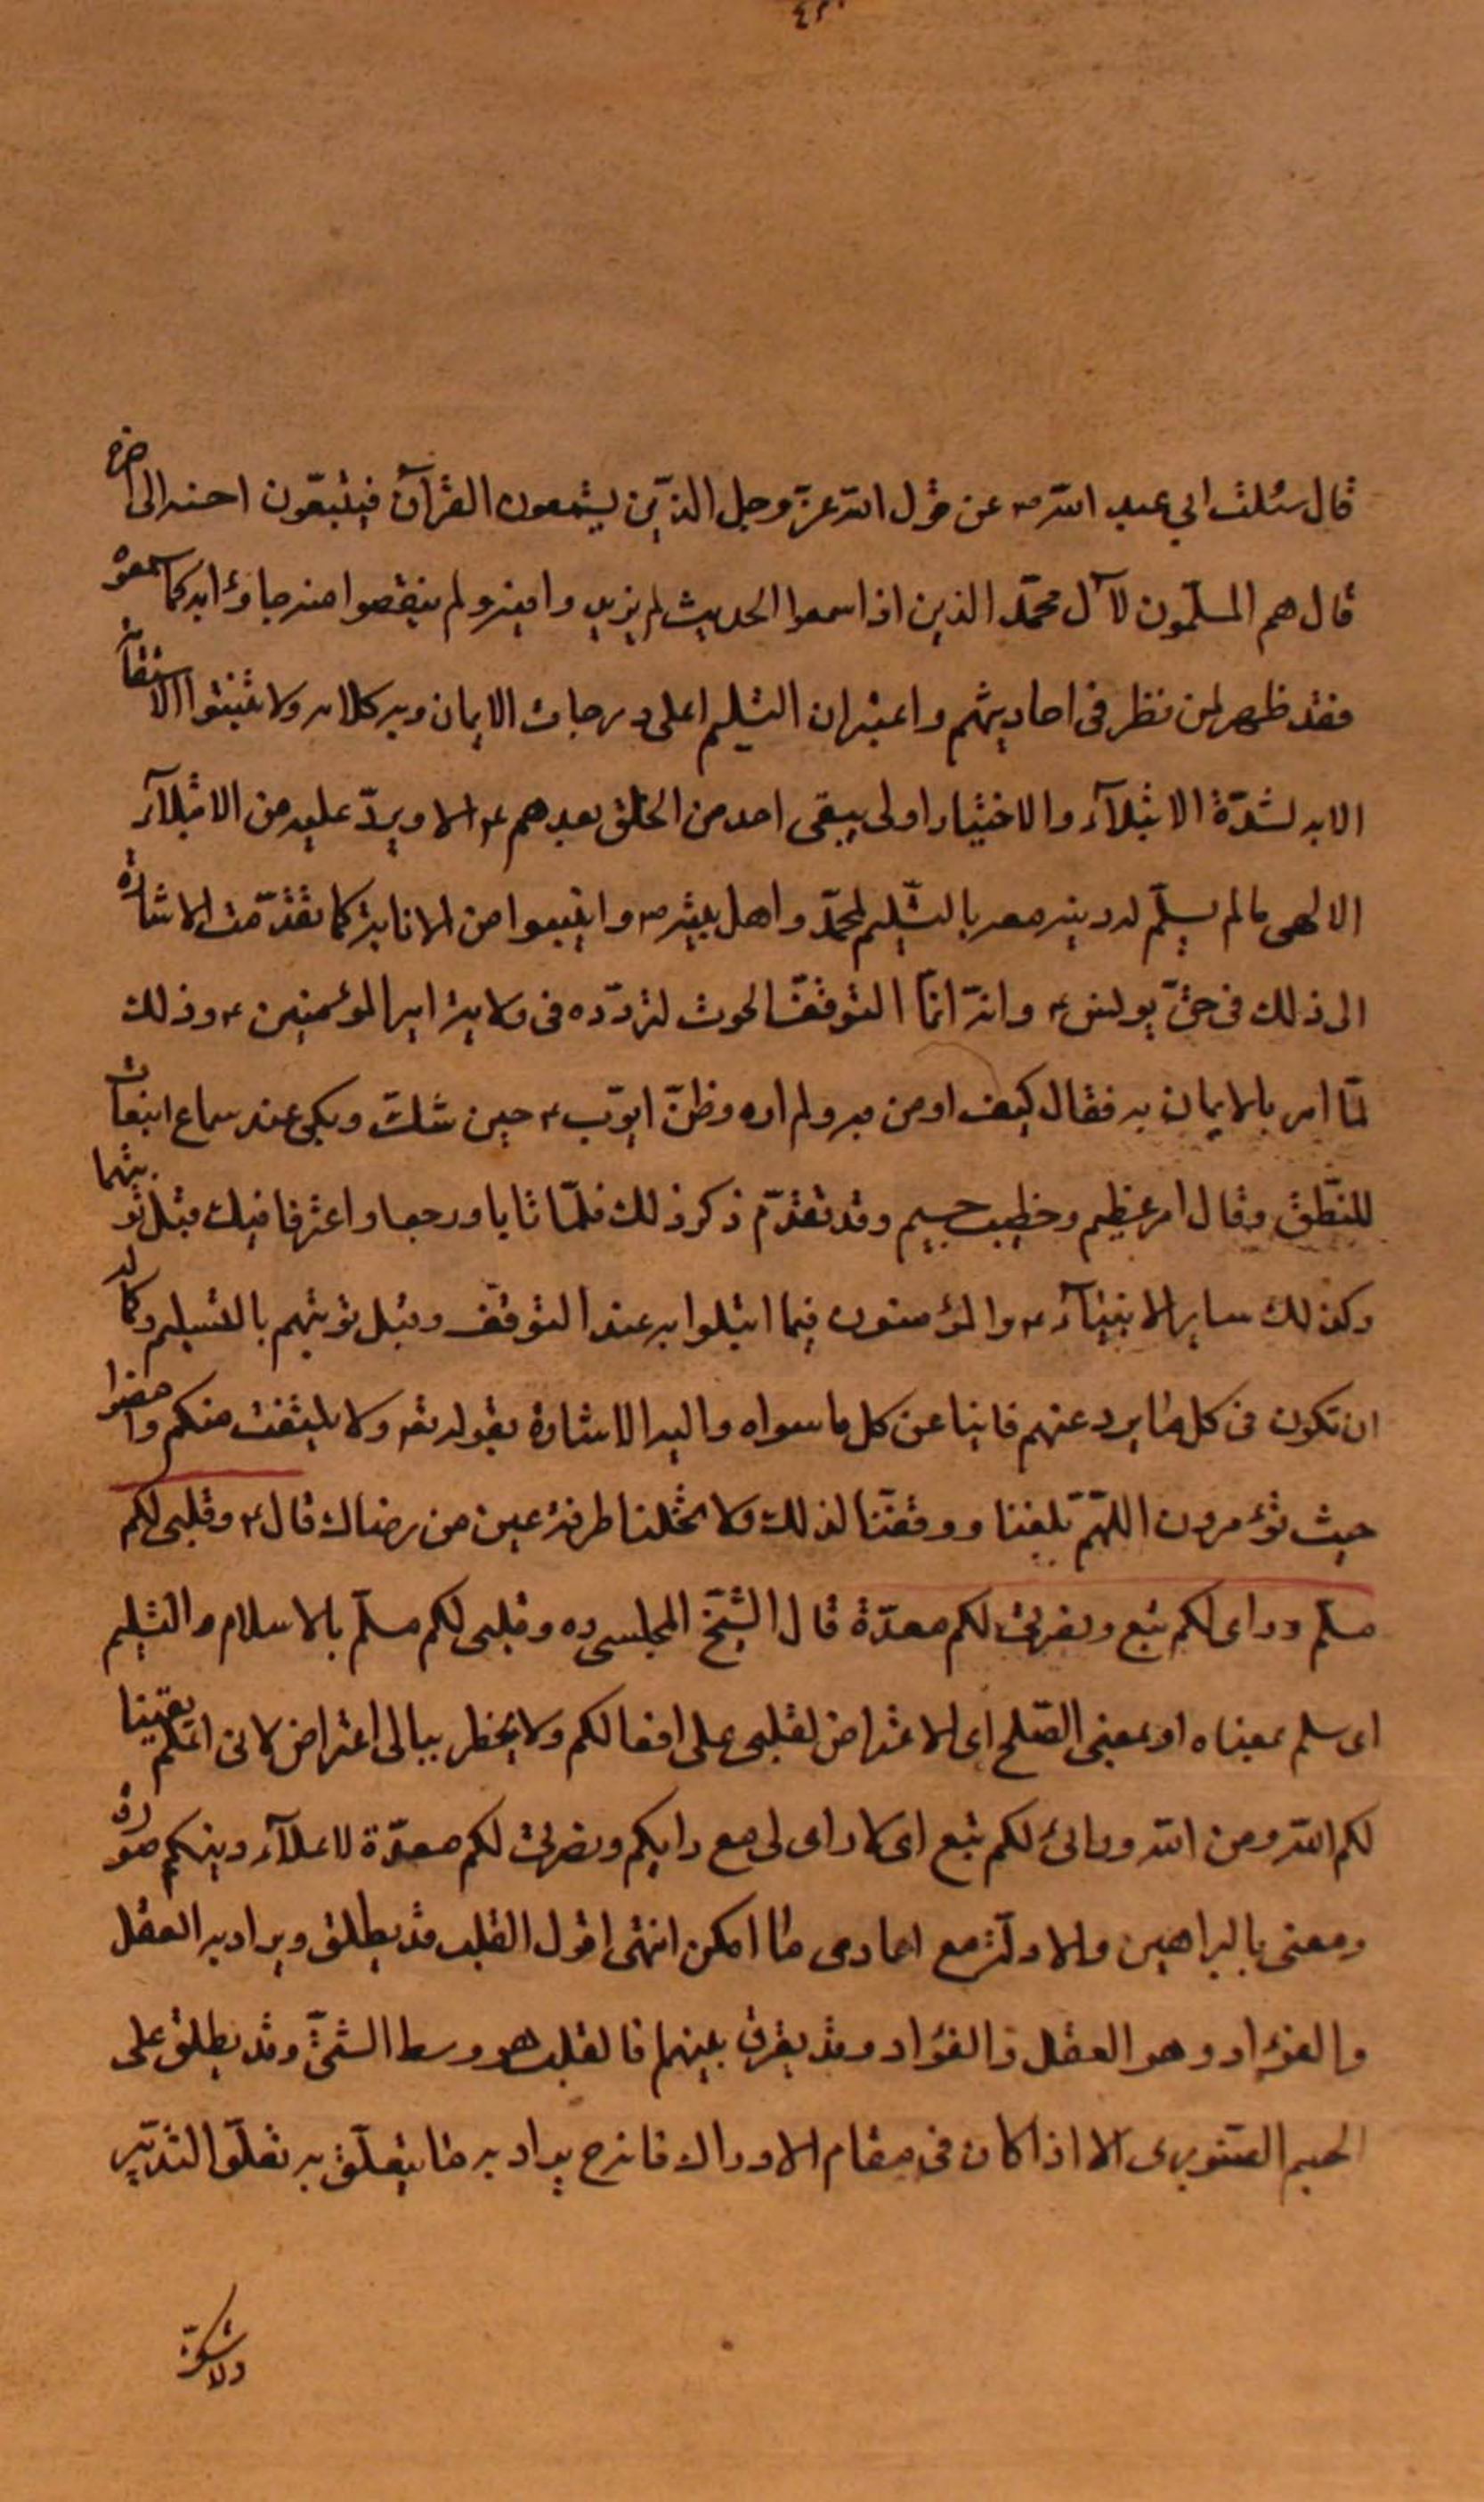 قال سئلت ابي عبد الله ع عن قول الله عز وجل الذين يستمعون القرآن فيتبعون احسنه الى اخره
قال هم المسلمون لآل محمد الذين اذا سمعوا الحديث لم يزيدوا فيه ولم ينقصوا منه جاؤا به كما سمعوه
فقد ظهر لمن نظر في احاديثهم واعتبر ان التسليم اعلى درجات الايمان وبه كلامه ولا الاستقامة
الا به لشدة الابتلاء والاختيار اولى يبقى احد من الخلق بعدهم ع الا ويرد عليه من الابتلاء
الالهى مالم يسلم له دينه معه بالتسليم لمحمد واهل بيته ص من الانابة كما تقدمت الاشارة
الى ذلك في حق يونس ع وانه انما التوقف لتردده في ولاية امير المؤمنين ع وذلك
لما امر بالايمان به فقال كيف اومن به ولم اره وظن ايوب ع حين شك وبكى عند سماع انبعاث
للنطق وقال امر عظيم وخطب جسيم وقد تقدم ذكر ذلك فلما تابا ورجعا واعترفا قبل توبتهما
وكذلك ساير الانبياء ع والمؤمنون فيما ابتلوا به عند التوقف وقبل توبتهم بالتسليم وكماله
ان تكون في كل ما يرد عنهم فانيا عن كل ما سواه واليه الاشارة بقوله تعه ولا يلتفت منكم وامضوا
حيث تؤمرون اللهم بلغنا ووفقنا لذلك ولا تخلنا طرفة عين من رضاك قال ع وقلبى لكم
مسلم وراى لكم تبع ونصرتى لكم معدة قال الشيخ المجلسى ره وقلبى لكم مسلم بالاسلام والتسليم
اى سلم بمعناه او بمعنى الصلح اى لا اعتراض لقلبى على افعالكم ولا يخطر ببالى اعتراض لانى اعلم يقينا
لكم الله ومن الله ورائى لكم تبع اى لا راى لى مع رايكم ونصرتى لكم معدة لاعلاء دينكم صورة
ومعنى بالبراهين والادلة مع اعادى ما امكن انتهى اقول القلب قد يطلق ويراد به العقل
والفؤاد وهو العقل والفؤاد وقد يفرق بينهما فالقلب هو وسط الشئ وقد يطلق على
الجسم الصنوبرى الا اذا كان في مقام الادراك فانه ح يراد به ما يتعلق به تعلق التدبير